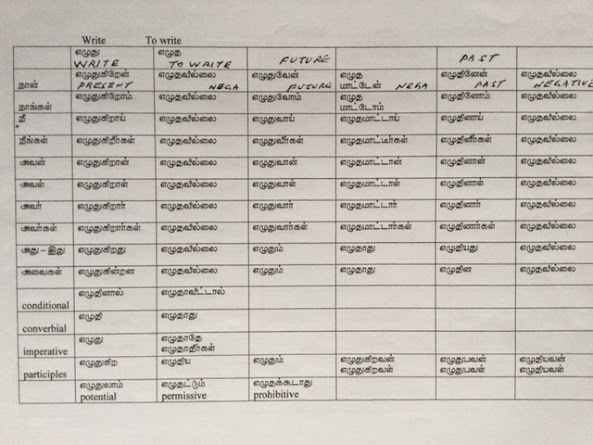 Write To write
எழுது எழுத
WRITE TO WRITE FUTURE PAST
நான் எழுதுகிறேன் எழுதவில்லை எழுதுவேன் எழுத மாட்டேன் எழுதினேன் எழுதவில்லை
PRESENT NEGA FUTURE NEGA PAST NEGATIVE
நாங்கள் எழுதுகிறோம் எழுதவில்லை எழுதுவோம் எழுத மாட்டோம் எழுதினோம் எழுதவில்லை
நீ எழுதுகிறாய் எழுதவில்லை எழுதுவாய் எழுதமாட்டாய் எழுதினாய் எழுதவில்லை
நீங்கள் எழுதுகிறீர்கள் எழுதவில்லை எழுதுவீர்கள் எழுதமாட்டீர்கள் எழுதினீர்கள் எழுதவில்லை
அவன் எழுதுகிறான் எழுதவில்லை எழுதுவான் எழுதமாட்டான் எழுதினான் எழுதவில்லை
அவள் எழுதுகிறாள் எழுதவில்லை எழுதுவாள் எழுதமாட்டாள் எழுதினாள் எழுதவில்லை
அவர் எழுதுகிறார் எழுதவில்லை எழுதுவார் எழுதமாட்டார் எழுதினார் எழுதவில்லை
அவர்கள் எழுதுகிறார்கள் எழுதவில்லை எழுதுவார்கள் எழுதமாட்டார்கள் எழுதினார்கள் எழுதவில்லை
அது – இது எழுதுகிறது எழுதவில்லை எழுதும் எழுதாது எழுதியது எழுதவில்லை
அவைகள் எழுதுகின்றன எழுதவில்லை எழுதும் எழுதாது எழுதின எழுதவில்லை
conditional எழுதினால் எழுதாவிட்டால்
converbial எழுதி எழுதாது
imperative எழுது எழுதாதே
எழுதாதீர்கள்
participles எழுதுகிற எழுதிய எழுதும் எழுதுகிறவன் எழுதுபவன் எழுதியவன்
எழுதுகிறவள் எழுதுபவள் எழுதியவள்
எழுதலாம் எழுதட்டும் எழுதக்கூடாது
potential permissive prohibitive